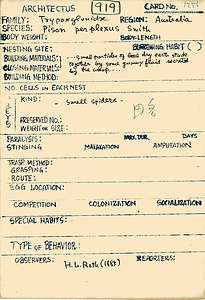 ARCHITECTUS 919 CARD No.
FAMILY: Trypoxylonidae REGION: Australia
SPECIES: Pison perplexus Smith
BODY WEIGHT: BODY LENGTH
NESTING SITE: BURROWING HABIT ( )
BUILDING MATERIALS: small particles of loose dry earth stuck
CLOSING MATERIALS: together by some gummy fluid secreted
BUILDING METHOD: by the wasp
NO. CELLS IN EACH NEST
KIND: - Small spiders -
PRESERVED No.:
WEIGHT OR SIZE:
PARALYSIS: MAX. DUR. DAYS
STINGING MALAXATION AMPUTATION
TRASP. METHOD:
GRASPING:
ROUTE:
EGG LOCATION:
COMPETITION COLONIZATION SOCIALIZATION
SPECIAL HABITS:
TYPE OF BEHAVIOR:
OBSERVERS: REPORTERS:
H. L. Roth (1885)